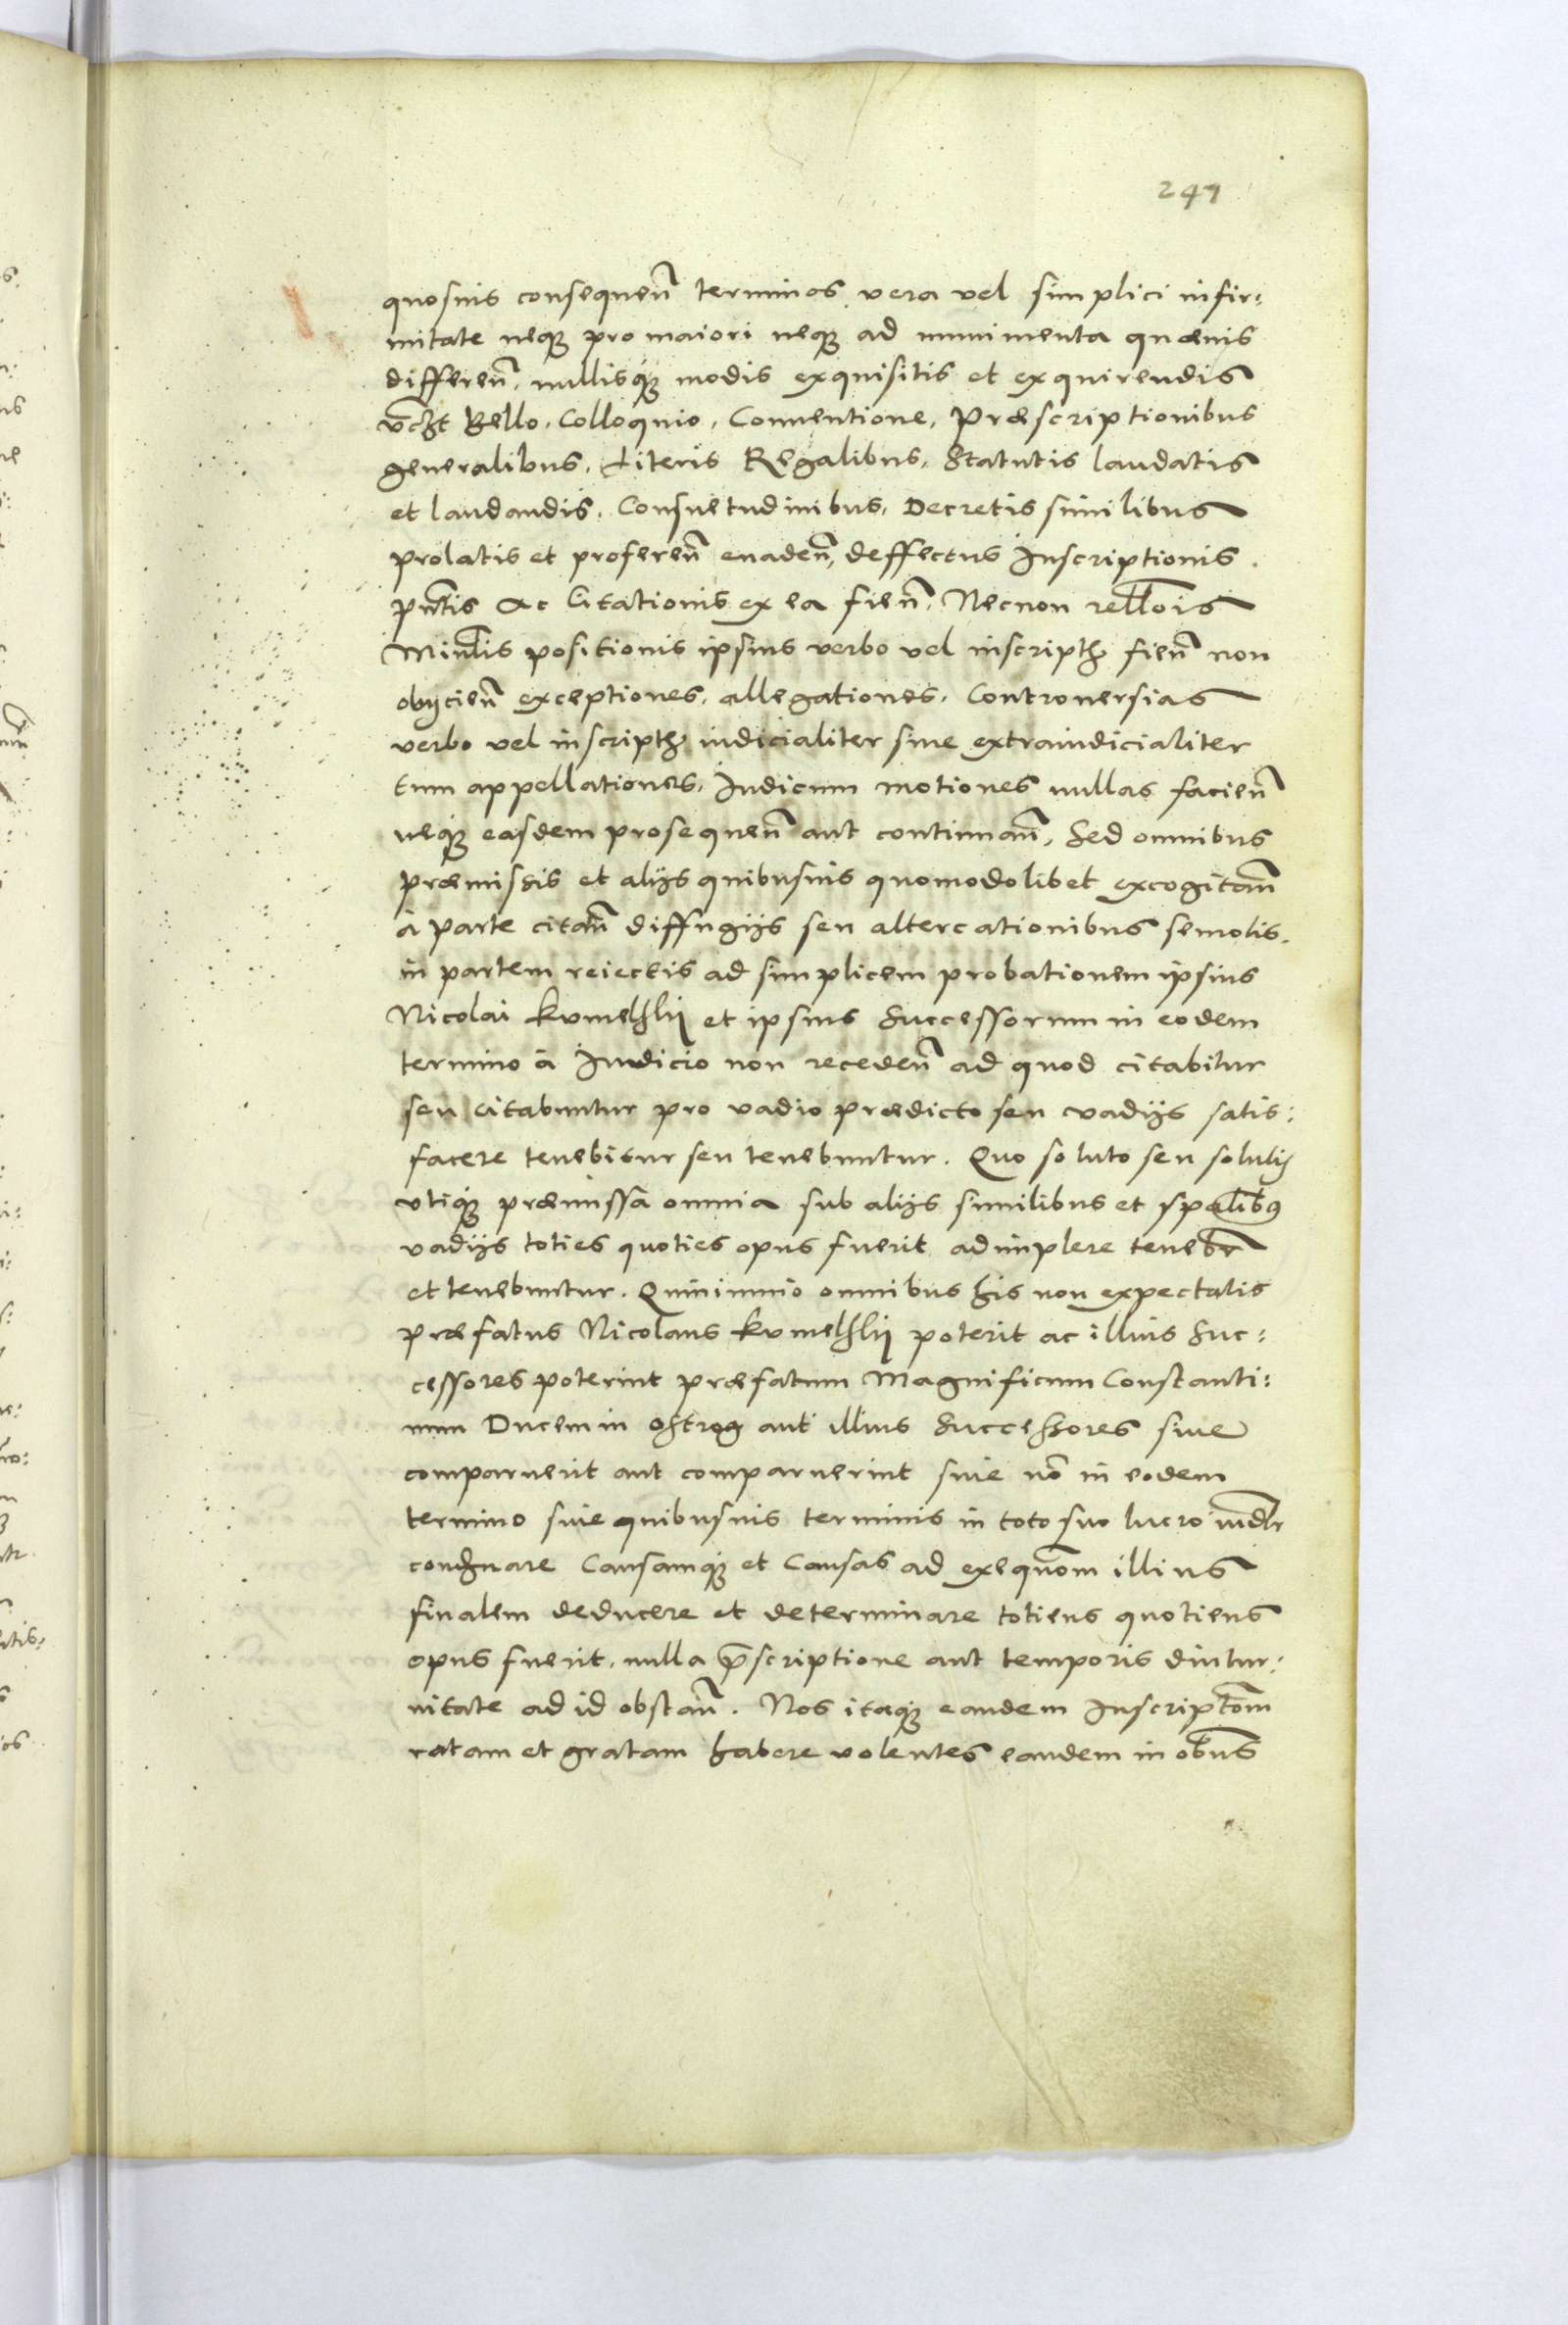 241
quosuis consequeñ terminos vera vel simplici infir:
mitate neqꝫ pro maiori neqꝫ ad munimenta quæuis
differeñ, nullisqꝫ modis exquisitis et exquirendis
vꝫt Bello, Colloquio, Conuentione, Præscriptionibus
generalibus, Literis Regalibus, Statutis laudatis
et laudandis, Consuetudinibus, Decretis similibus
prolatis et profereñ euadeñ, deffectus Inscriptionis
pñtis ac Citationis ex ea fieñ, Necnon rellõis
Minlis positionis ipsius verbo vel inscripth fieñ non
obijcieñ exceptiones, allegationes, Controuersias
verbo vel inscripth iudicialiter siue extraiudicialiter
tum appellationes, Iudicum motiones nullas facieñ
neqꝫ easdem prosequeñ aut continuañ, Sed omnibus
præmissis et alijs quibusuis quomodolibet excogitañ
à parte citañ diffugijs seu altercationibus semotis,
in partem reiectis ad simplicem probationem ipsius
Nicolai kvmelslij et ipsius Successorum in eodem
termino à Iudicio non recedeñ ad quod citabitur
seu citabuntur pro vadio prædicto seu vadijs satis:
facere tenebitur seu tenebuntur. Quo soluto seu solutis
vtiqꝫ præmissa omnia sub alijs similibus et spalibꝰ
vadijs toties quoties opus fuerit adimplere tenebr
et tenebuntur. Quinimmo omnibus his non expectatis
præfatus Nicolaus kvmelslij poterit ac illius Suc:
cessores poterint præfatum Magnificum Constanti:
num Ducem in Ostrog aut illius Successores siue
comparuerit aut comparuerint siue nõ in eodem
termino siue quibusuis terminis in toto suo lucro iudlr
condgnare Causamqꝫ et Causas ad exequõm illius
finalem deducere et determinare totiens quotiens
opus fuerit, nulla p̃scriptione aut temporis diutur:
nitate ad id obstañ. Nos itaqꝫ eandem Inscriptõm
ratam et gratam habere volentes eandem in oĩbus